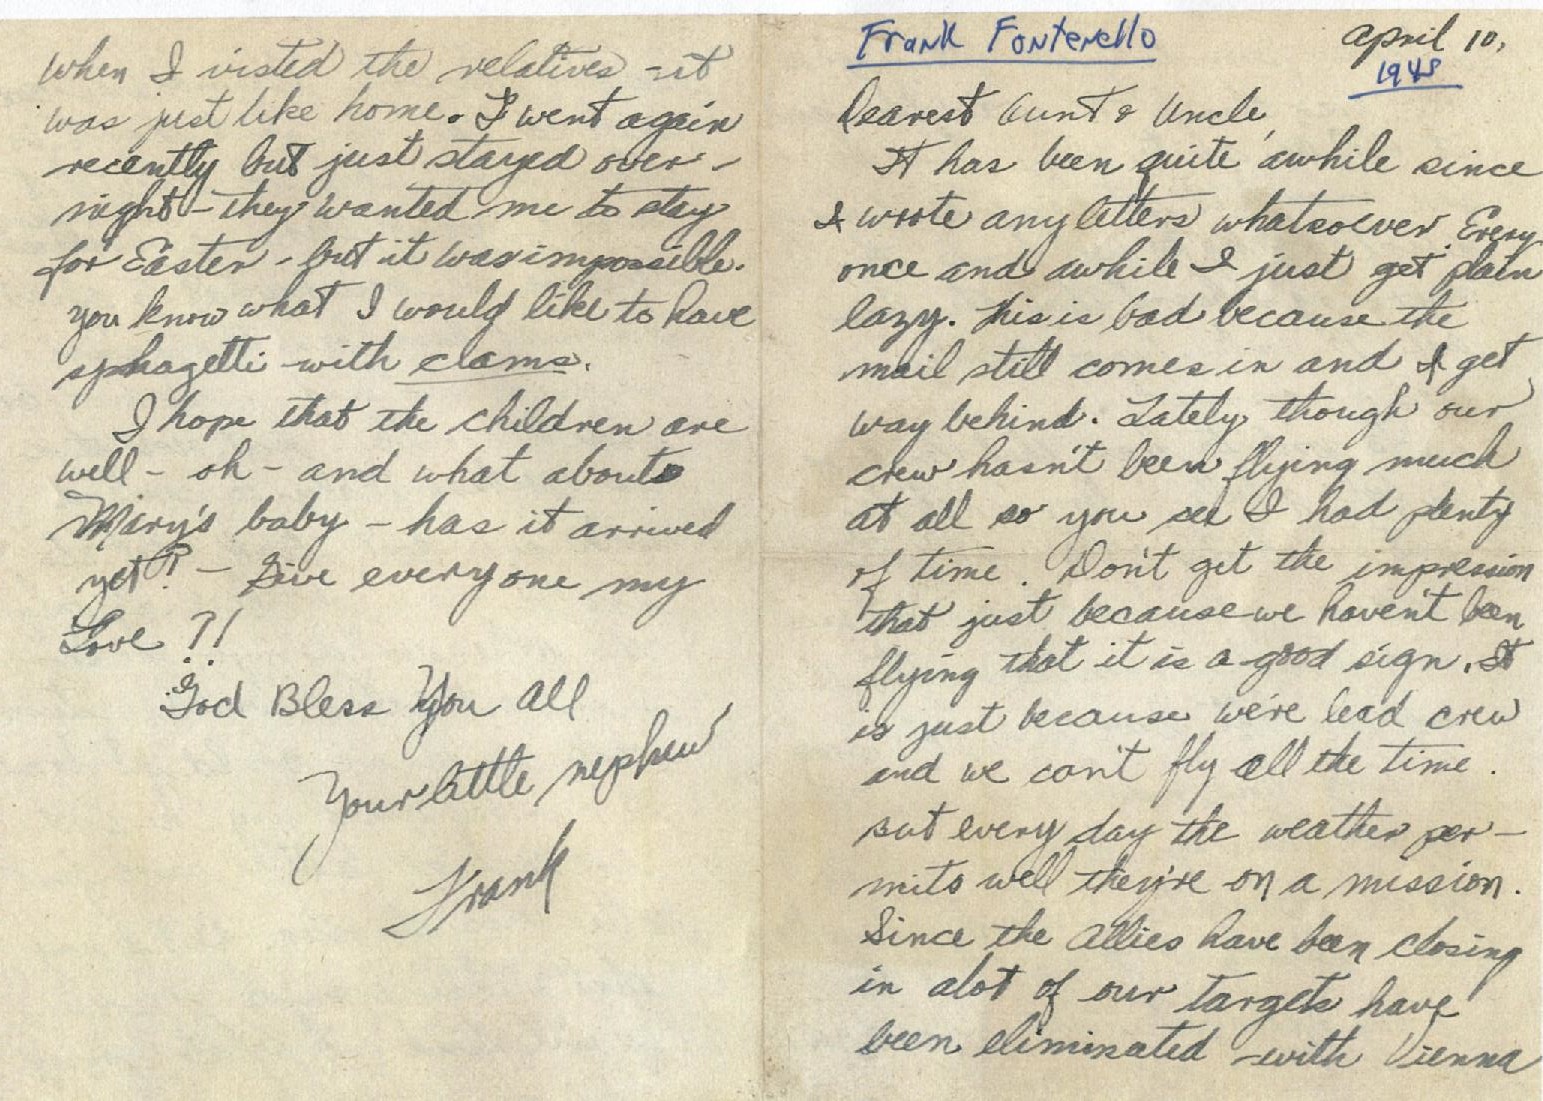 Frank Fontenello
April 10,
1945
Dearest Aunt & Uncle,
It has been quite awhile since
I wrote any letters whatsoever. Every
once and awhile I just get plain
lazy. This is bad because the
mail still comes in and I get
way behind. Lately though our
crew hasn't been flying much
at all so you see I had plenty
of time. Don't get the impression
that just because we haven't been
flying that it is a good sign. It
is just because we're lead crew
and we can't fly all the time.
but every day the weather per-
mits well they're on a mission.
Since the Allies have been closing
in alot of our targets have
been eliminated - with Vienna
when I visted the relatives - it
was just like home. I went again
recently but just stayed over-
night - they wanted me to stay
for Easter - but it was impossible.
you know what I would like to have
sphagetti - with clams.
I hope that the children are
well - oh - and what about
Mary's baby - has it arrived
yet? - Give everyone my
Love ?!
God Bless You All
Your little nephew
Frank